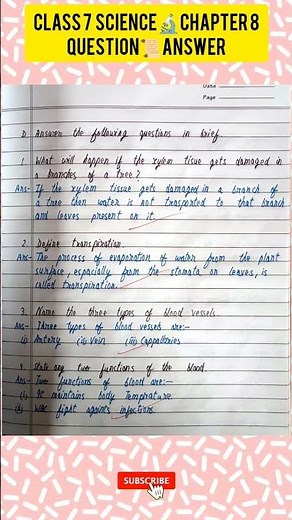 CLASS 7 SCIENCE 🔬 CHAPTER 8
QUESTION📜ANSWER
Date
Page
D. Answer the following questions in brief.
1. What will happen if the xylem tisue gets damaged in
a branches of a tree?
Ans- If the xylem tissue gets damaged in a branch of
a tree then water is not trasported to that branch
and leaves present on it.
2. Define transpiration.
Ans- The process of evaporation of water from the plant
surface, espacially from the stomata on leaves, is
called transpiration.
3. Name the three types of blood vessels.
Ans- Three types of blood vessels are:-
(i) Artery (ii) Vein (iii) Cappallories
4. State any two functions of the blood.
Ans- Two functions of blood are:-
(i) It maintains body Temprature.
(ii) WBC fight againts infections.
SUBSCRIBE